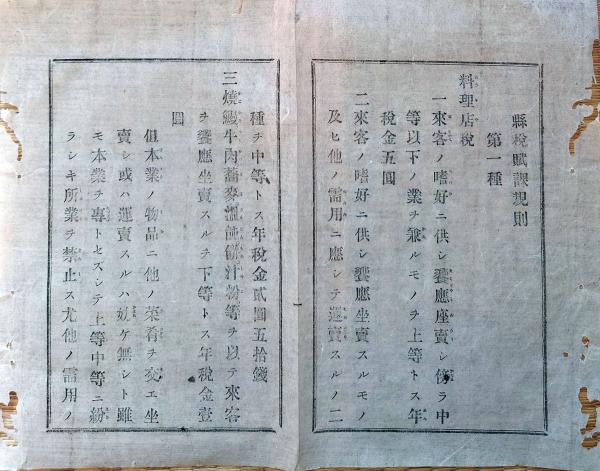 縣稅賦課規則
第一種
料理店稅
一來客ノ嗜好ニ供シ饗應座賣シ傍ラ中
等以下ノ業ヲ兼ルモノヲ上等トス年
稅金五圓
二來客ノ嗜好ニ供シ饗應坐賣スルモノ
及ヒ他ノ需用ニ應シテ運賣スルノ二
種ヲ中等トス年稅金貳圓五拾錢
三燒鰻牛肉蕎麥溫飩餅汁粉等ヲ以テ來客
ヲ饗應坐賣スルヲ下等トス年稅金壹
圓
但本業ノ物品ニ他ノ菜肴ヲ交エ坐
賣シ或ハ運賣スルハ妨ケ無シト雖
モ本業ヲ專トセズシテ上等中等ニ紛
ラシキ所業ヲ禁止ス尤他ノ需用ノ